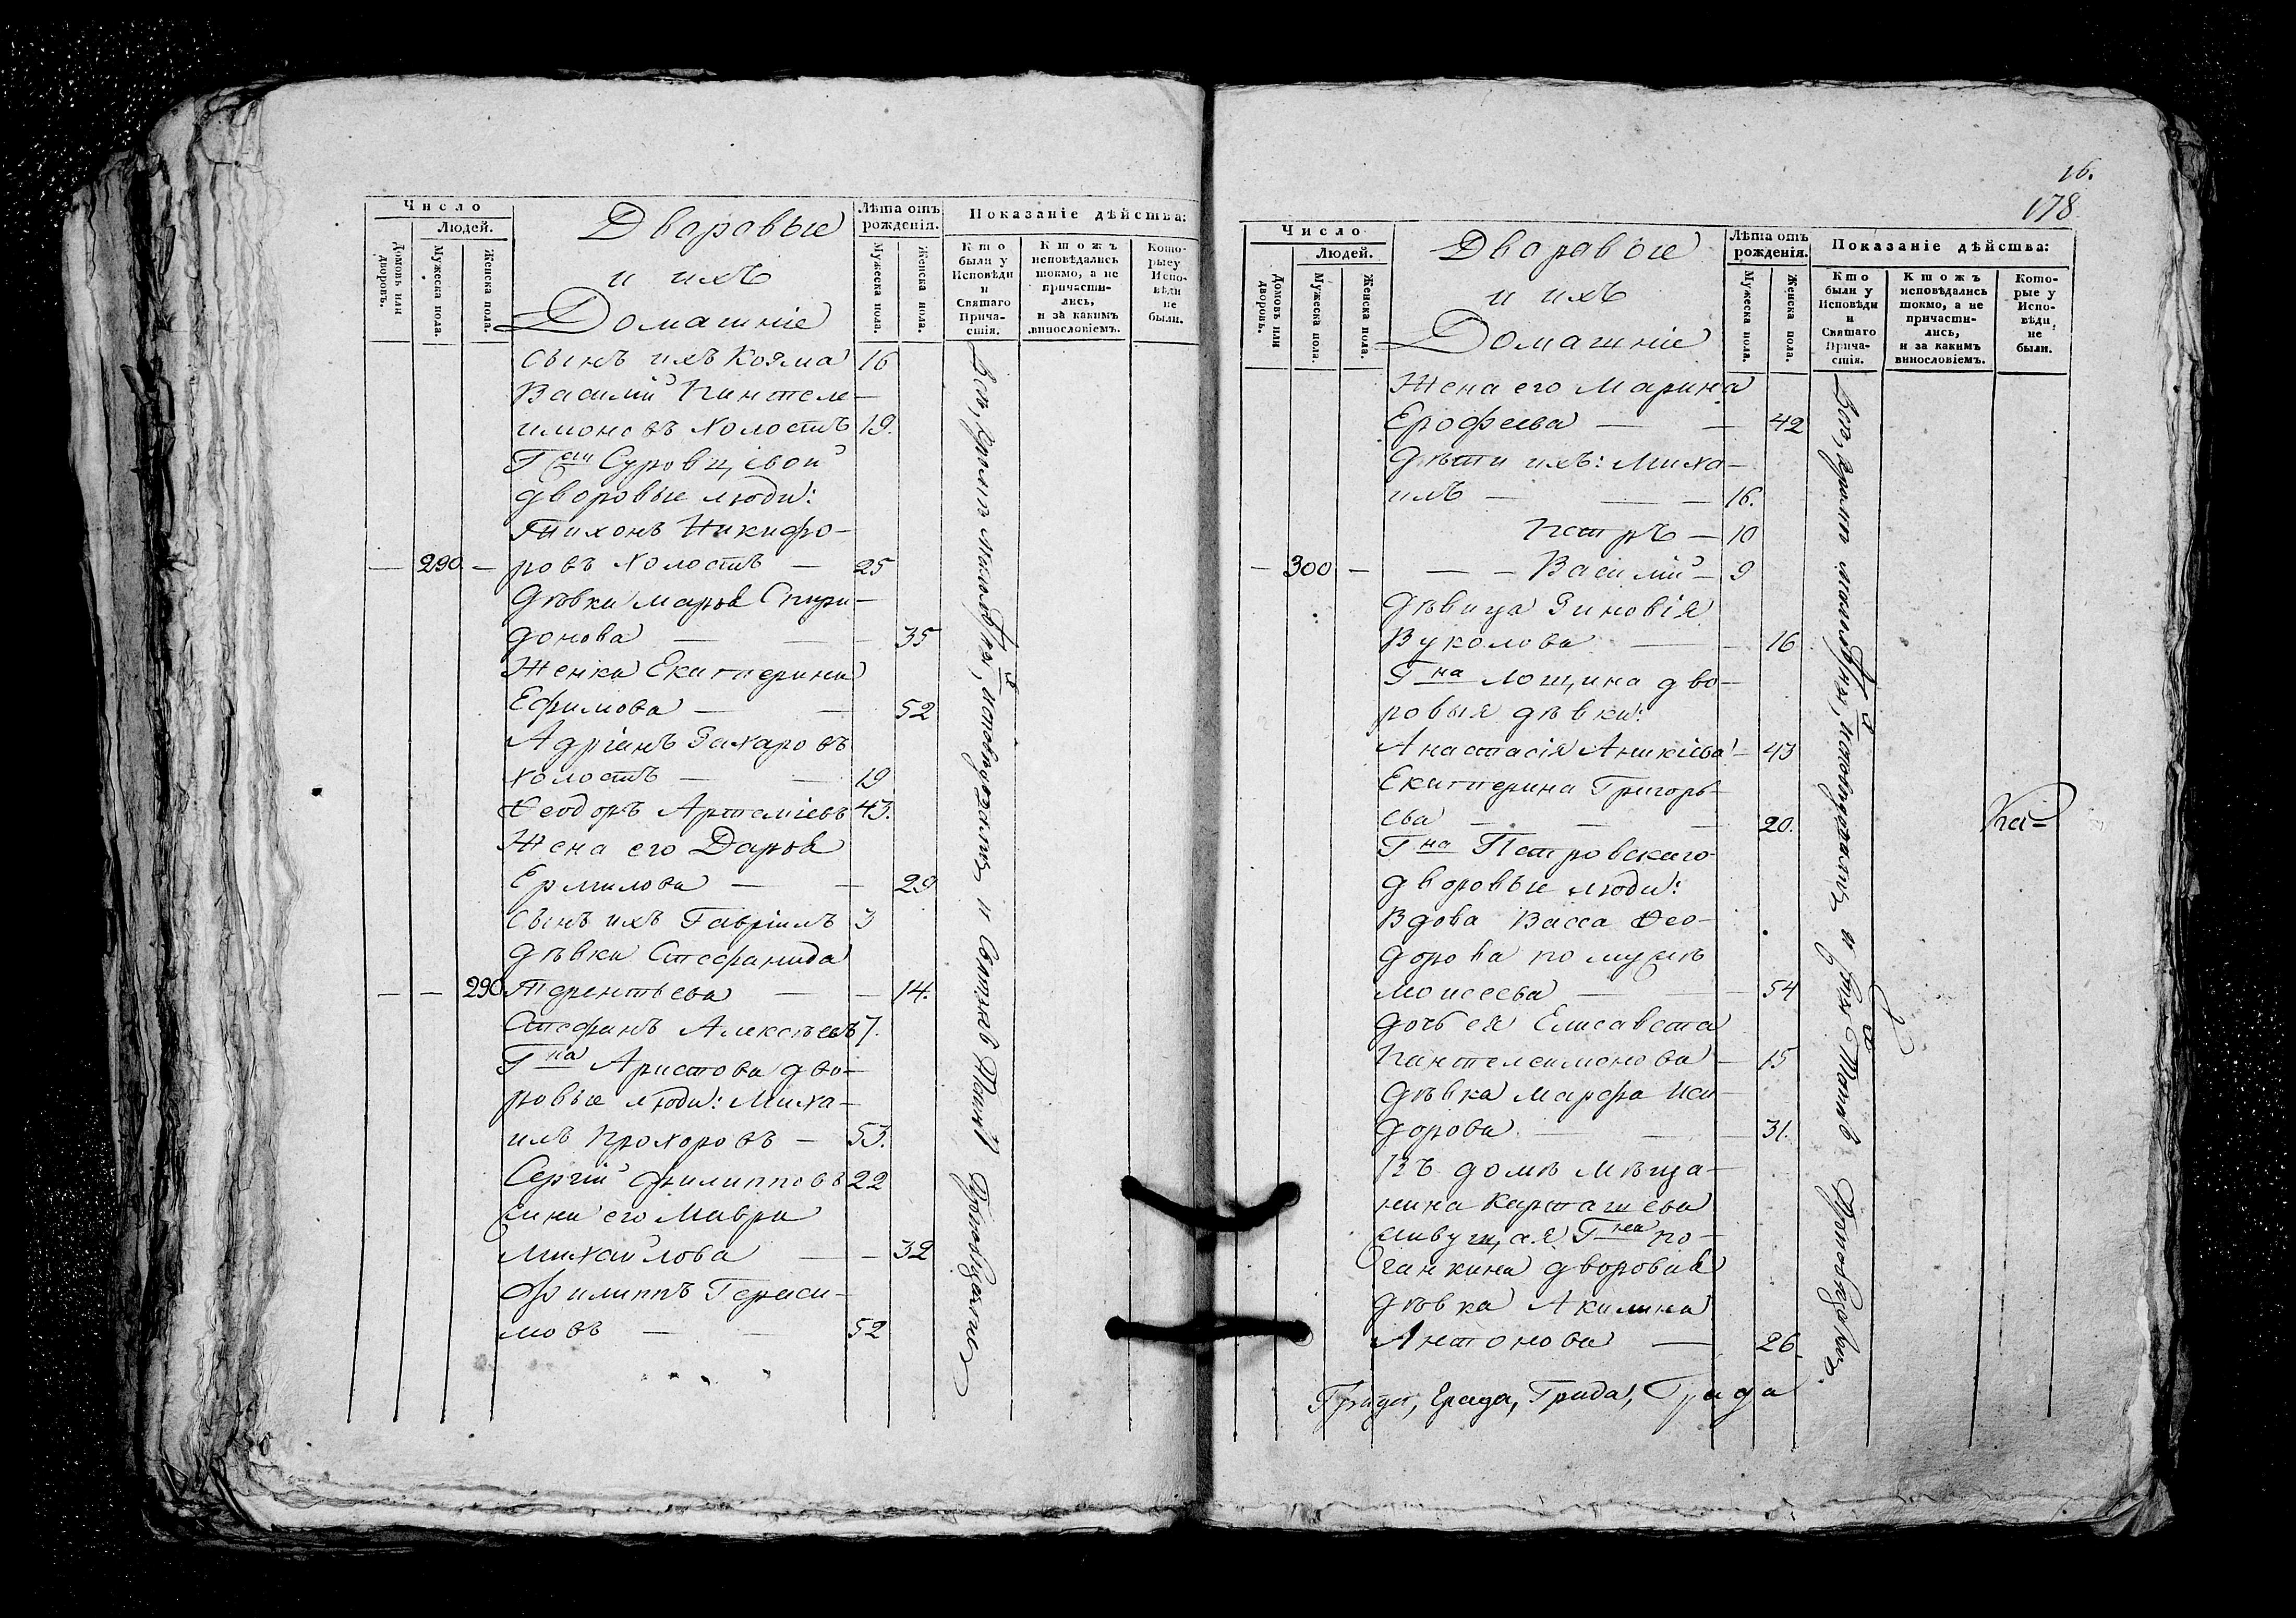 Число
Людей.
Домовъ или дворовъ.
Мужеска пола.
Женска пола.
Дворовые
и ихъ
Домашніе
Лѣта отъ рожденія.
Мужеска пола.
Женска пола.
Показаніе дѣйства:
Кто были у Исповѣди и Святаго Прича-стія.
Ктожъ исповѣдались токмо, а не причасти-лись, и за какимъ винословіемъ.
Кото-рыеу Испо-вѣди не были.
сынъ ихъ Козма 16
Василій Пантеле-
имоновъ холостъ 19.
Гжи Суровцевой
дворовые люди:
Тихонъ Никифо-
— 290. — ровъ холостъ — 25
Дѣвка Марѳа Спири-
донова — — 35
Женка Екатерина
Ефимова — — 52
Адріанъ Захаровъ
холостъ — — 19
Ѳеодоръ Артеміевъ 43.
Жена его Дарья
Ермилова — — 29
Сынъ ихъ Гавріилъ 3
Дѣвка Стефанида
— — 290 Терентьева — — 14.
Стефанъ Алексѣевъ 7.
Гна Аристова дво-
ровые люди: Миха-
илъ Прохоровъ — 53.
Сергій Филипповъ 22
Жена его Мавра
Михайлова — — 32
Филиппъ Гераси-
мовъ — — 52
Всѣ, кромѣ исповѣдались и Святыхъ Таинъ
16.
178.
Число
Людей.
Домовъ или дворовъ.
Мужеска пола.
Женска пола.
Дворовые
и ихъ
Домашніе
Лѣта отъ рожденія.
Мужеска пола.
Женска пола.
Показаніе дѣйства:
Кто были у Исповѣди и Святаго Прича-стія.
Ктожъ исповѣдались токмо, а не причасти-лись, и за какимъ винословіемъ.
Кото-рые у Испо-вѣди не были.
Жена его Марина
Ерофеева — — 42
Дѣти ихъ: Миха-
илъ — — 16.
Петръ — 10
— 300 — — — Василій — 9
Дѣвица Зиновія
Вуколова — — 16
Гна Лощина дво-
ровыя дѣвки:
Анастасія Аникіева — 43
Екатерина Григорь-
ева — — — 20.
Гна Петровскаго
дворовые люди:
Вдова Васса Ѳео-
дорова по мужѣ
Моисеева — — 54
Дочь ея Елисавета
Пантелеимонова — 15
Дѣвка Марфа Иси-
дорова — — 31.
Въ домѣ мѣща-
нина Карташева
живущая Гна По-
ганкина дворовая
дѣвка Акилина
Антонова — 26.
Всѣ, кромѣ исповѣдались и Таинъ